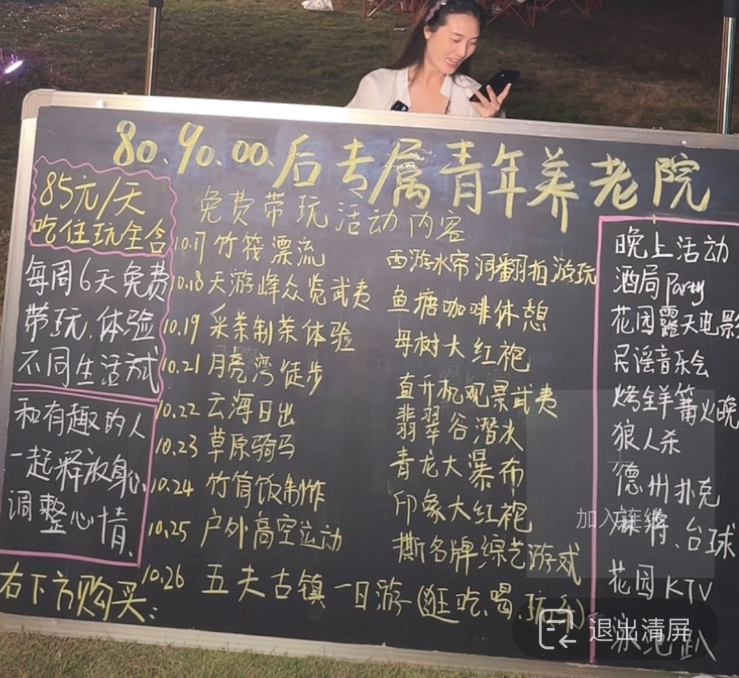 80.90.00.后专属青年养老院
85元/天
吃住玩全含
每周6天免费
带玩.体验
不同生活方式
和有趣的人
一起释放身心
调整心情、
右下方购买：
免费带玩活动内容
10.17 竹筏漂流
10.18 天游峰众览武夷
10.19 采茶制茶体验
10.21 月亮湾徒步
10.22 云海日出
10.23 草原骑马
10.24 竹筒饭制作
10.25 户外高空运动
10.26 五夫古镇一日游(逛.吃.喝.玩
西游水帘洞翻拍游玩
鱼塘咖啡休憩
母树大红袍
直升机观景武夷
翡翠谷潜水
青龙大瀑布
印象大红袍
撕名牌综艺游戏
晚上活动
酒局Party
花园露天电影
民谣音乐会
烤全羊篝火晚
狼人杀
德州扑克
麻将、台球
花园KTV
趴
加入连线
退出清屏